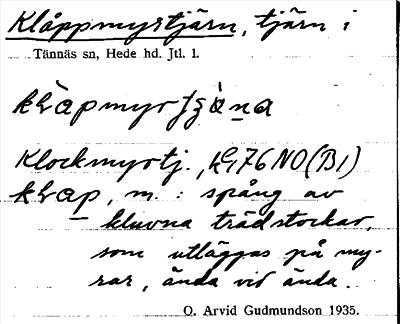 Klåppmyrtjärn, tjärn i
Tännäs sn, Hede hd. Jtl. l.
Klockmyrtj., 76 NO (B1)
m. : spång av
kluvna trädstockar,
som utläggas på my-
rar, ända vid ända.
O. Arvid Gudmundson 1935.